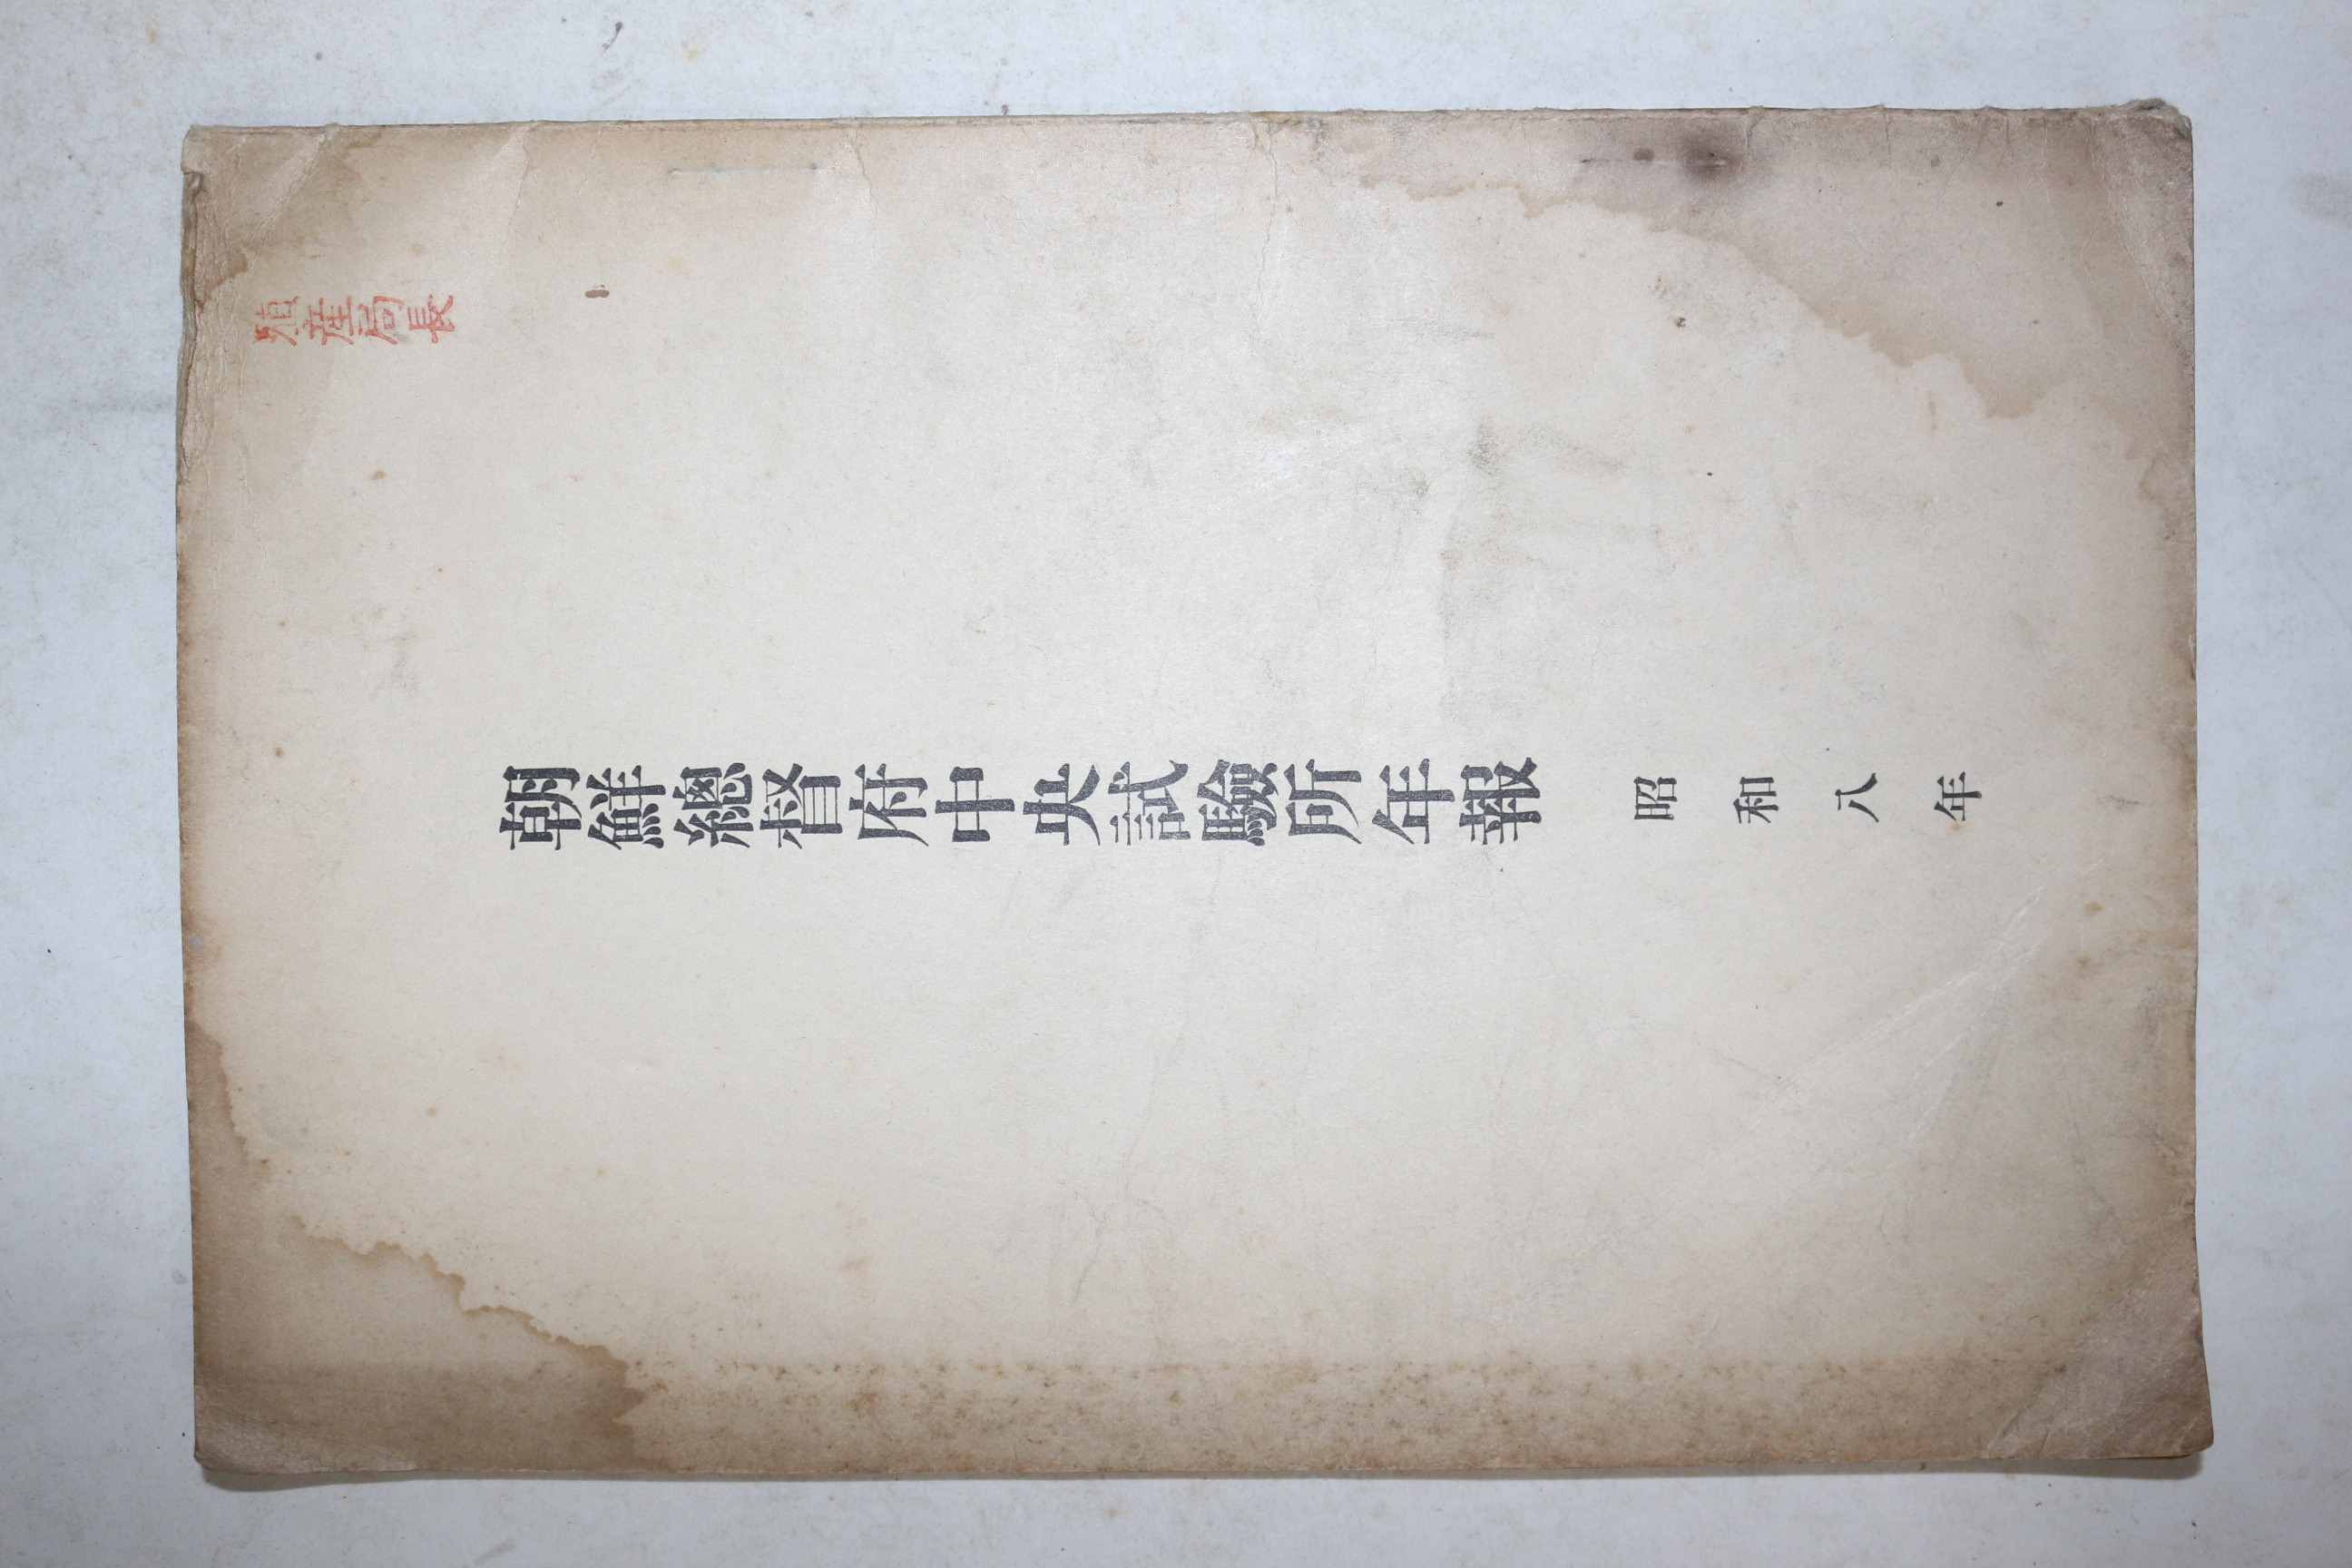 殖産局長
朝鮮總督府中央試驗所年報
昭和八年